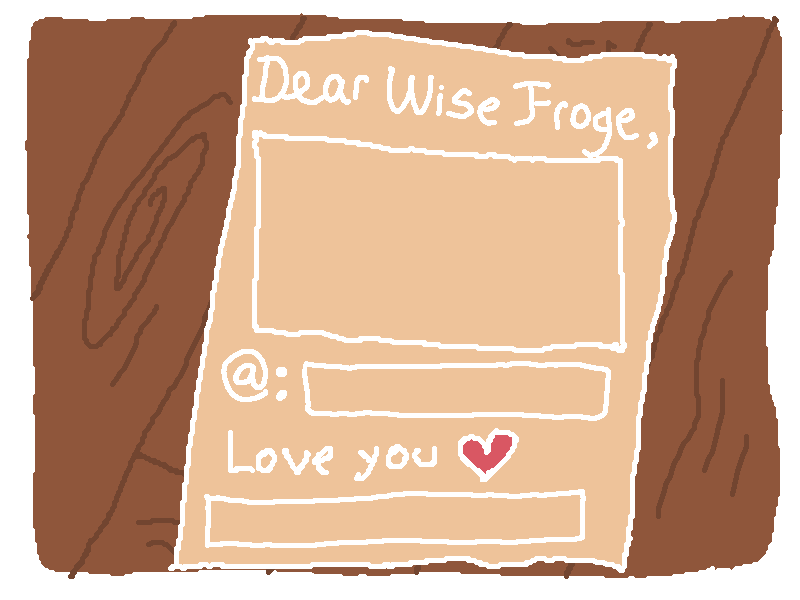 Dear Wise Froge,
@:
Love you